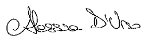 Alessia D'Urso